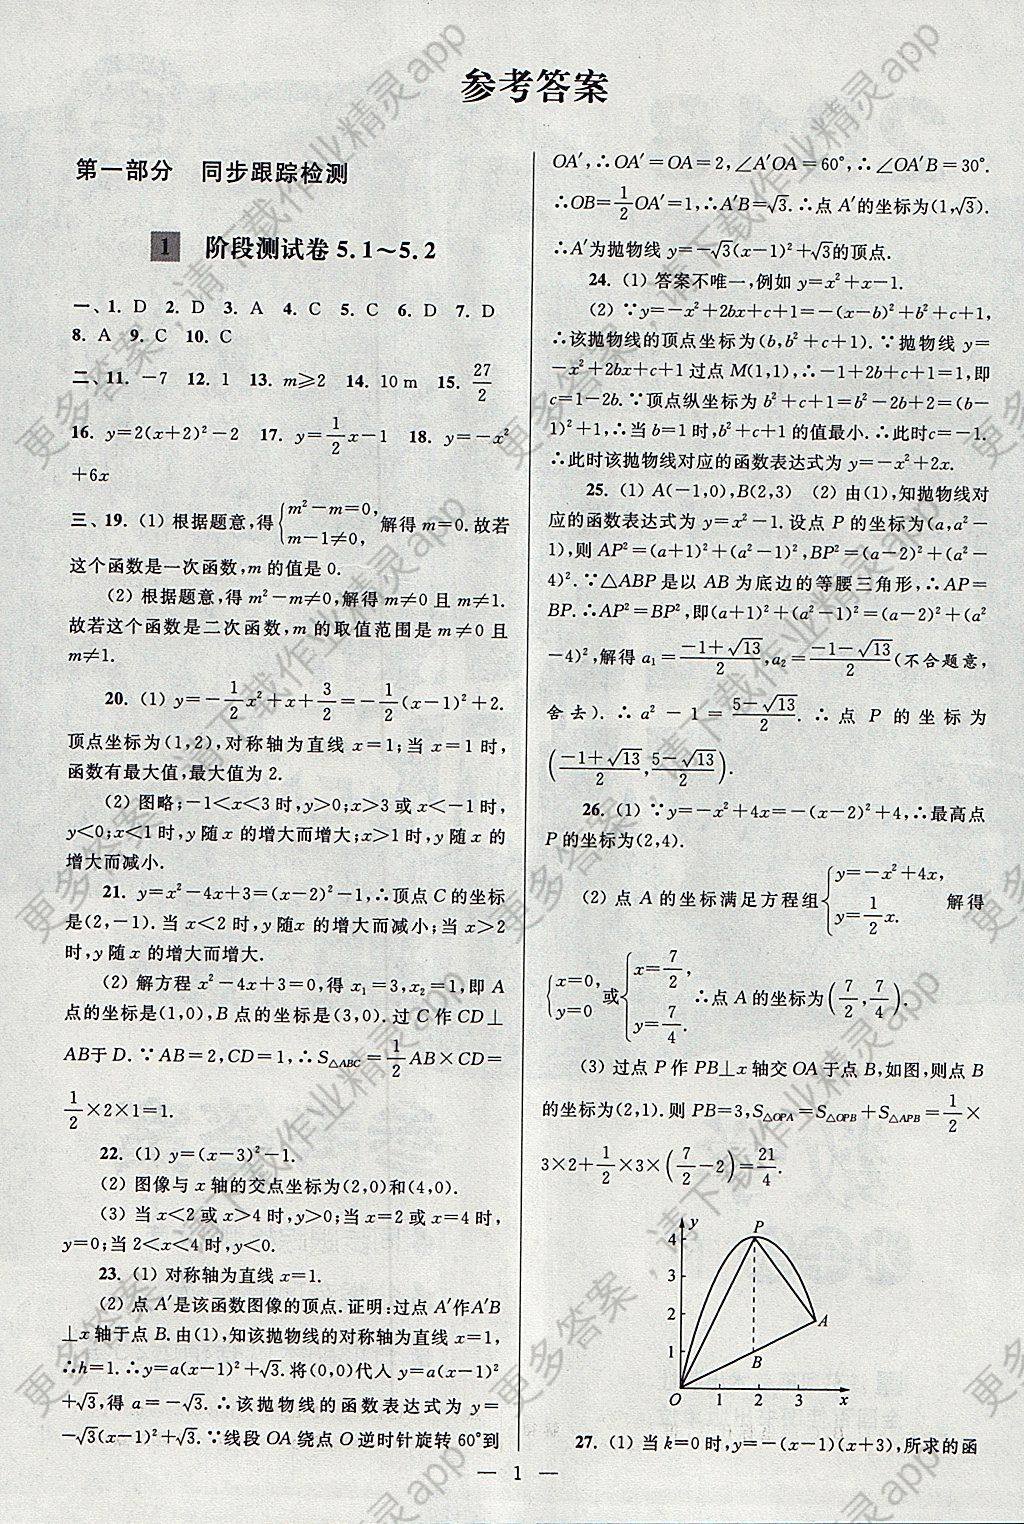 参考答案
第一部分 同步跟踪检测
1 阶段测试卷 5.1～5.2
一、1. D 2. D 3. A 4. C 5. C 6. D 7. D
8. A 9. C 10. C
二、11. －7 12. 1 13. m≥2 14. 10 m 15. 27/2
16. y=2(x+2)²－2 17. y=1/2x－1 18. y=－x²
+6x
三、19. (1) 根据题意,得{m²－m=0, m－1≠0, 解得 m=0. 故若
这个函数是一次函数,m 的值是 0.
(2) 根据题意,得 m²－m≠0,解得 m≠0 且 m≠1.
故若这个函数是二次函数, m 的取值范围是 m≠0 且
m≠1.
20. (1) y=－1/2x²+x+3/2=－1/2(x－1)²+2.
顶点坐标为(1,2),对称轴为直线 x=1;当 x=1 时,
函数有最大值,最大值为 2.
(2) 图略;－1<x<3 时,y>0;x>3 或 x<－1 时,
y<0;x<1 时,y 随 x 的增大而增大;x>1 时,y 随 x 的
增大而减小.
21. y=x²－4x+3=(x－2)²－1,∴顶点 C 的坐标
是(2,－1). 当 x<2 时,y随 x 的增大而减小;当 x>2
时,y随 x 的增大而增大.
(2) 解方程 x²－4x+3=0,得 x₁=3,x₂=1,即 A
点的坐标是(1,0),B 点的坐标是(3,0). 过 C 作 CD⊥
AB于 D. ∵AB=2,CD=1,∴S△ABC=1/2AB×CD=
1/2×2×1=1.
22. (1) y=(x－3)²－1.
(2) 图像与 x 轴的交点坐标为(2,0)和(4,0).
(3) 当 x<2 或 x>4 时,y>0;当 x=2 或 x=4 时,
y=0;当 2<x<4 时,y<0.
23. (1) 对称轴为直线 x=1.
(2) 点 A′是该函数图像的顶点. 证明:过点 A′作A′B
⊥x 轴于点 B. 由(1),知该抛物线的对称轴为直线 x=1,
∴h=1. ∴y=a(x－1)²+√3. 将(0,0)代入 y=a(x－1)²
+√3,得 a=－√3. ∴该抛物线的函数表达式为 y=
－√3(x－1)²+√3. ∵线段 OA 绕点 O 逆时针旋转 60°到
OA′,∴OA′=OA=2,∠A′OA=60°,∴∠OA′B=30°.
∴OB=1/2OA′=1,∴A′B=√3. ∴点 A′的坐标为(1,√3).
∴A′为抛物线 y=－√3(x－1)²+√3的顶点.
24. (1) 答案不唯一,例如 y=x²+x－1.
(2) ∵y=－x²+2bx+c+1=－(x－b)²+b²+c+1,
∴该抛物线的顶点坐标为(b,b²+c+1). ∵抛物线 y=
－x²+2bx+c+1 过点 M(1,1),∴－1+2b+c+1=1,即
c=1－2b. ∵顶点纵坐标为 b²+c+1=b²－2b+2=(b－
1)²+1,∴当 b=1 时,b²+c+1 的值最小. ∴此时c=－1.
∴此时该抛物线对应的函数表达式为 y=－x²+2x.
25. (1) A(－1,0),B(2,3) (2) 由(1),知抛物线对
应的函数表达式为 y=x²－1. 设点 P 的坐标为(a,a²－
1),则 AP²=(a+1)²+(a²－1)²,BP²=(a－2)²+(a²－
4)². ∵△ABP 是以 AB 为底边的等腰三角形,∴AP=
BP. ∴AP²=BP²,即(a+1)²+(a²－1)²=(a－2)²+(a²
－4)²,解得 a₁=(－1+√13)/2,a₂=(－1－√13)/2(不合题意,
舍去). ∴a²－1=(5－√13)/2. ∴点 P 的坐标为
((－1+√13)/2,(5－√13)/2).
26. (1) ∵y=－x²+4x=－(x－2)²+4,∴最高点
P 的坐标为(2,4).
(2) 点 A 的坐标满足方程组{y=－x²+4x, y=1/2x. 解得
{x=0, y=0 或{x=7/2, y=7/4. ∴点 A 的坐标为(7/2,7/4).
(3) 过点 P 作 PB⊥x 轴交 OA 于点 B,如图,则点 B
的坐标为(2,1). 则 PB=3,S△OPA=S△OPB+S△APB=1/2×
3×2+1/2×3×(7/2－2)=21/4.
y
P
4
3
2
A
1
B
O 1 2 3 x
27. (1) 当 k=0 时,y=－(x－1)(x+3),所求的函
— 1 —
更多答案，请下载作业精灵app